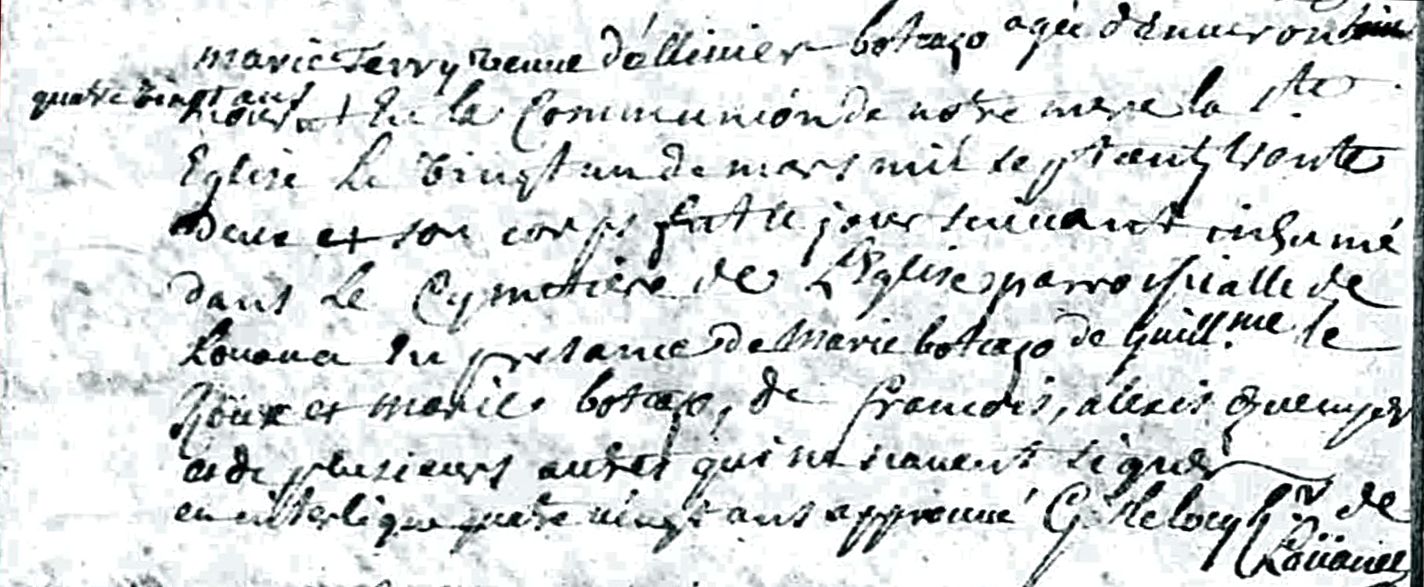 marie Terry veuve d'ollivier botcazo agée d'environ
quatre vingt ans
mourut En la Communion de notre mere la Ste
Eglise le vingt un de mars mil sept cent trente
Deux et son corps fut le jour suivant inhumé
dans le Cymetiere de L'Eglise parroissialle de
Louanec En presance de Marie botcazo de Guillme le
Roux et marie botcazo, de francois, alexis Quemper
et de plusieurs autres qui ne scavent signer
en interligne quatre vingt ans approuvé G. de
Loüanec